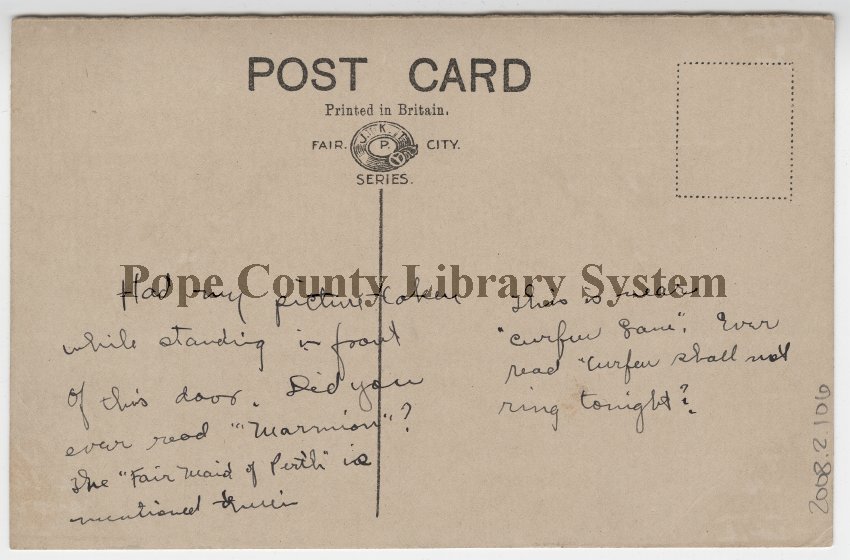 POST CARD
Printed in Britain.
FAIR. J.K.T. P. CITY.
SERIES.
Pope County Library System
Had my picture taken
while standing in front
of this door. Did you
ever read "Marmion"?
The "Fair Maid of Perth" is
mentioned therein
This is near
"Curfew Lane". Ever
read "Curfew shall not
ring tonight?
2008.2.106